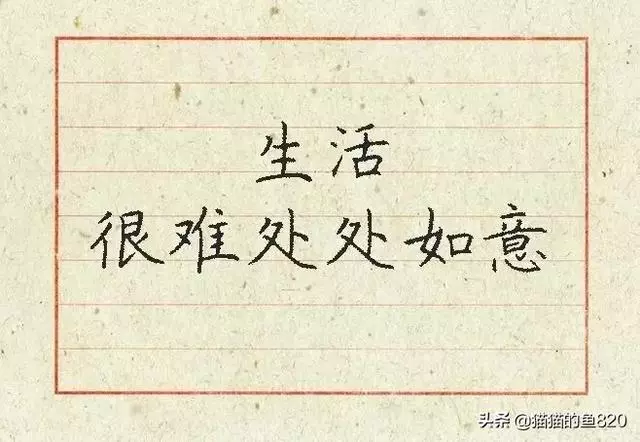 生活
很难处处如意
头条 @猫猫的鱼820